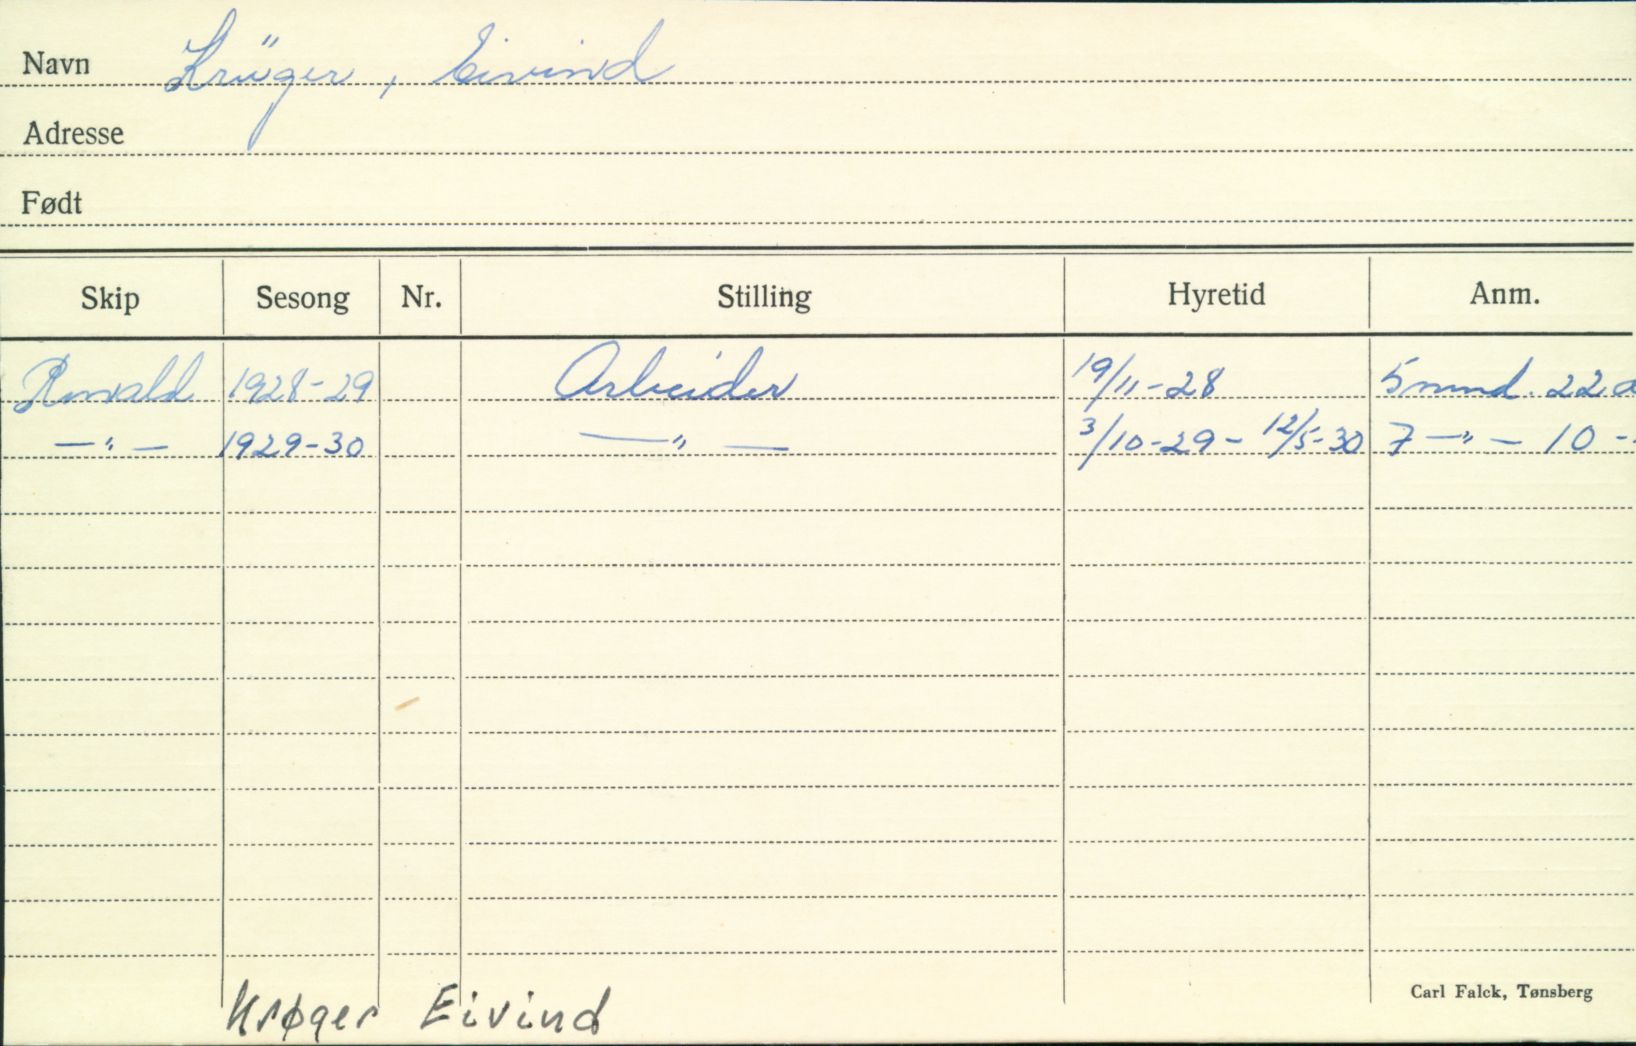 Navn Krüger, Eivind
Adresse
Født
Skip Sesong Nr. Stilling Hyretid Anm.
Ronald 1928-29 Arbeider 19/11-28 5 mnd. 22 d
—"— 1929-30 —"— 3/10-29 - 12/5-30 7 —"— 10 -
Carl Falck, Tønsberg
Krøger Eivind